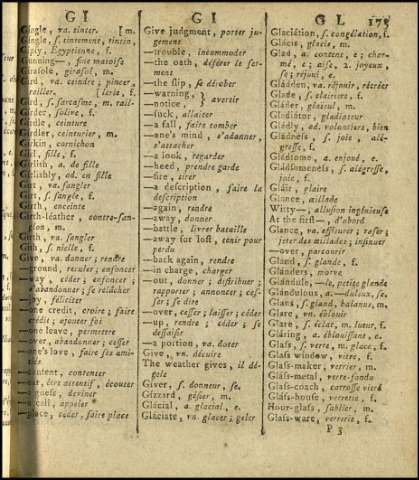 G I
G I
G L 175
Gingle, va. tinter. [m.
Gingle, s. tintement, tintin,
Gipsy, Egyptienne, f.
Girasole, girasol, m.
Gird, va. ceindre; pincer,
railler. [lerie, f.
Gird, s. sarcasme, m. rail-
Girder, solive, f.
Girdle, ceinture
Girdler, ceinturier, m.
Girkin, cornichon
Girl, fille, f.
Girlish, a. de fille
Girlishly, ad. en fille
Girt, va. sangler
Girt, s. sangle, f.
Girth, enceinte
Girth-léather, contre-san-
glon, m.
Girth, va. sangler
Gith, s. nielle, f.
Give, va. donner; rendre
—ground, reculer; enfoncer
—way, céder; enfoncer;
s'abandonner; se relâcher
—joy, féliciter
—one credit, croire; faire
crédit; ajouter foi
—one leave, permettre
—over, abandonner; cesser
—one's love, faire ses ami-
tiés
—content, contenter
—ear, être attentif, écouter
—a guess, deviner
—a call, appeler
—place, céder, faire place
Give judgment, porter ju-
gement
—trouble, incommoder
—the oath, déférer le ser-
ment
—the slip, se dérober
—warning, }
—notice, } avertir
—suck, allaiter
—a fall, faire tomber
—one's mind, s'adonner,
s'attacher
—a look, regarder
—heed, prendre garde
—fire, tirer
—a description, faire la
description
—again, rendre
—away, donner
—battle, livrer bataille
—away for lost, tenir pour
perdu
—back again, rendre
—in charge, charger
—out, donner; distribuer;
rapporter; annoncer; ces-
ser; se dire
—over, cesser; laisser; céder
—up, rendre; céder; se
dessaisir
—a portion, va. doter
Give, vn. décuire
The weather gives, il dé-
gèle
Giver, s. donneur, se.
Gizzard, gésier, m.
Glácial, a. glacial, e.
Gláciate, va. glacer; geler
Glaciátion, s. congélation, f.
Glácis, glacis, m.
Glad, a. content, e; char-
mé, e; aise, 2. joyeux,
se; réjoui, e.
Gládden, va. réjouir, récréer
Glade, s. clairière, f.
Gláder, glaïeul, m.
Gladiátor, gladiateur
Gládly, ad. volontiers, bien
Gládness, s. joie, allé-
gresse, f.
Gládsome, a. enjoué, e.
Gládsomeness, s. allégresse,
joie, f.
Glair, glaire
Glance, œillade
Witty—, allusion ingénieuse
At the first—, d'abord
Glance, va. effleurer; raser;
jeter des œillades; insinuer
over, parcourir
Gland, s. glande, f.
Glánders, morve
Glándule,—le, petite glande
Glándulous, a.—duleux, se.
Glans, s. gland, balanus, m.
Glare, vn. éblouir
Glare, s. éclat, m. lueur, f.
Gláring, a. éblouissant, e.
Glass, s. verre, m. glace, f.
Glass window, vitre, f.
Glass-maker, verrier, m.
Gláss-metal, verre-fondu
Glass-coach, carrosse vitré
Gláss-house, verrerie, f.
Hour-glass, sablier, m.
Gláss-ware, verrerie, f.
P 3